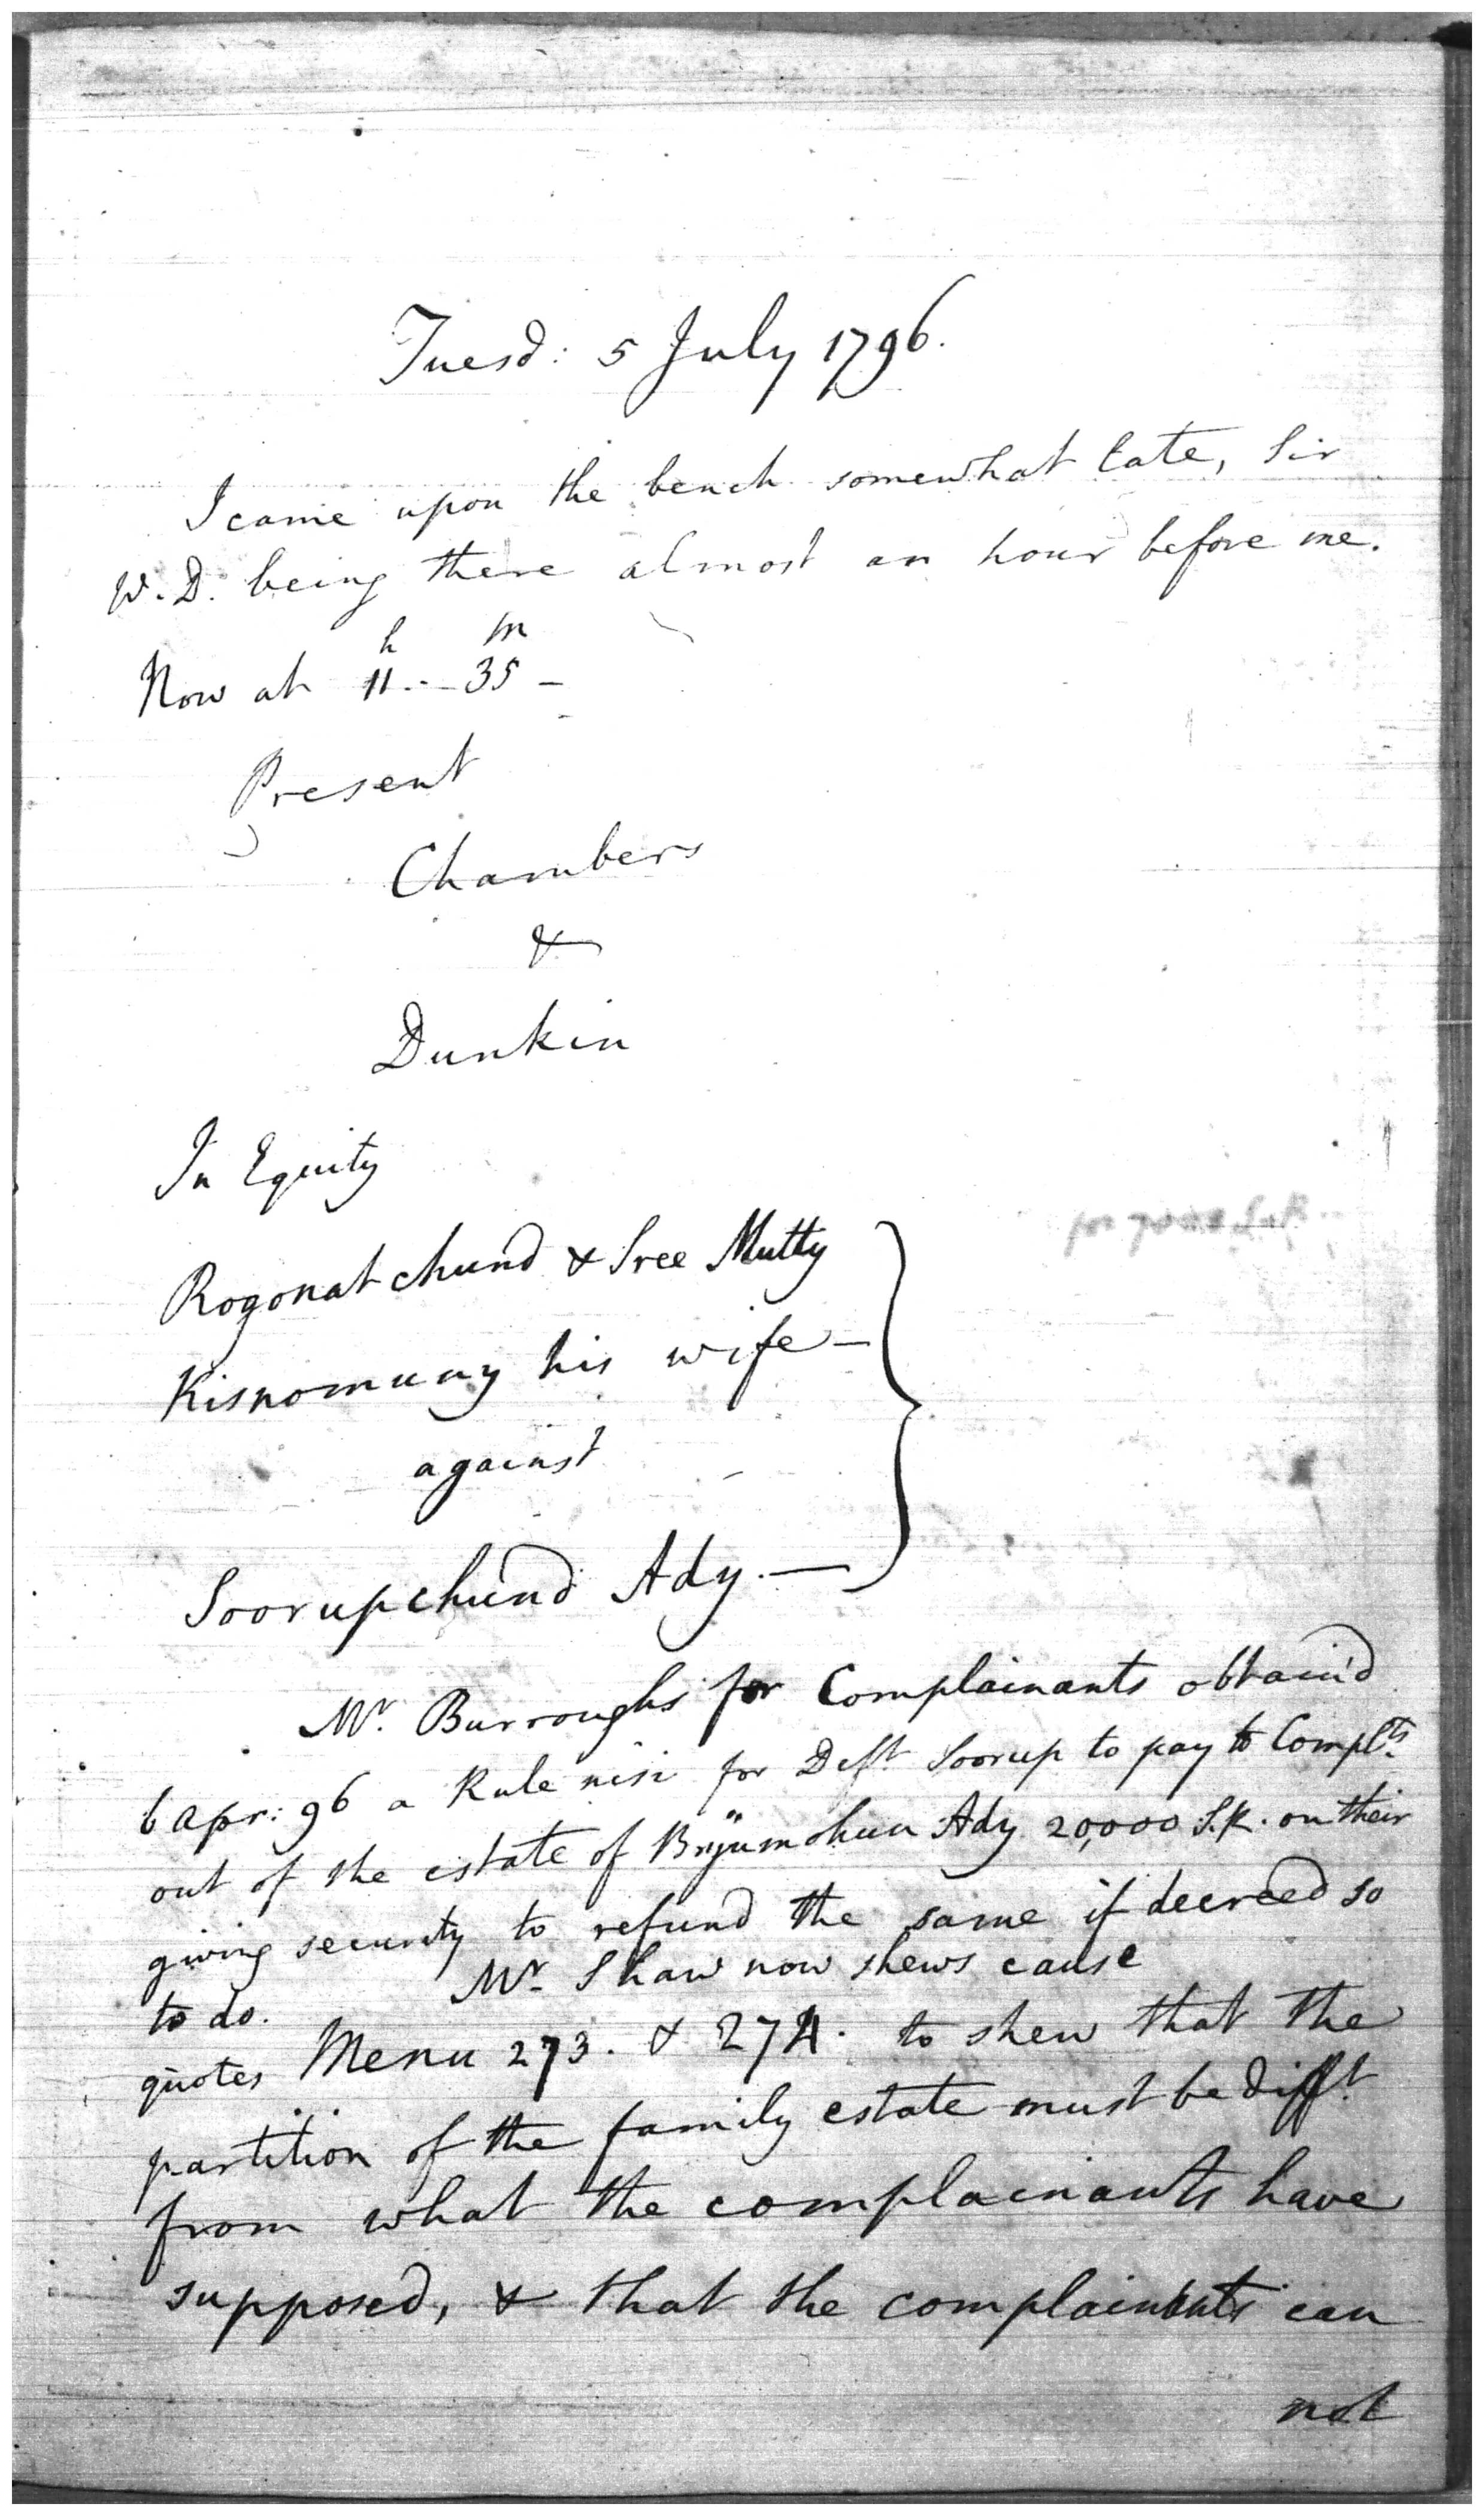 Tuesd: 5 July 1796.
I came upon the bench somewhat late, Sir
W. D. being there almost an hour before me.
Now at 11h -- 35m -
Present
Chambers
&
Dunkin
In Equity
Rogonatchund & Sree Mutty
Kisnomuny his wife —
against
Soorupchund Ady. —
Mr. Burroughs for Complainants obtain'd
6 Apr: 96 a Rule nisi for Deft. Soorup to pay to Complts.
out of the estate of Brijumohun Ady 20,000 S.R. on their
giving security to refund the same if decreed so
to do. Mr. Shaw now shews cause
quotes Menu 273. & 274. to shew that the
partition of the family estate must be difft.
from what the complainants have
supposed, & that the complainants can
not